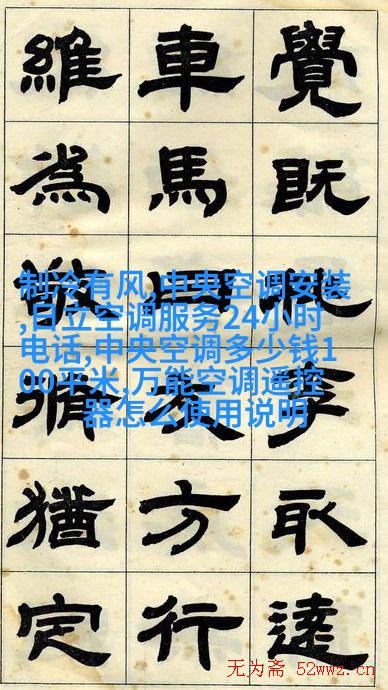 覺既取遠
車馬用方行
維爲敬脩猶定
制冷有风,中央空调安装
,日立空调服务24小时
电话,中央空调多少钱1
00平米,万能空调遥控
器怎么使用说明
无为斋 52wwz.cn